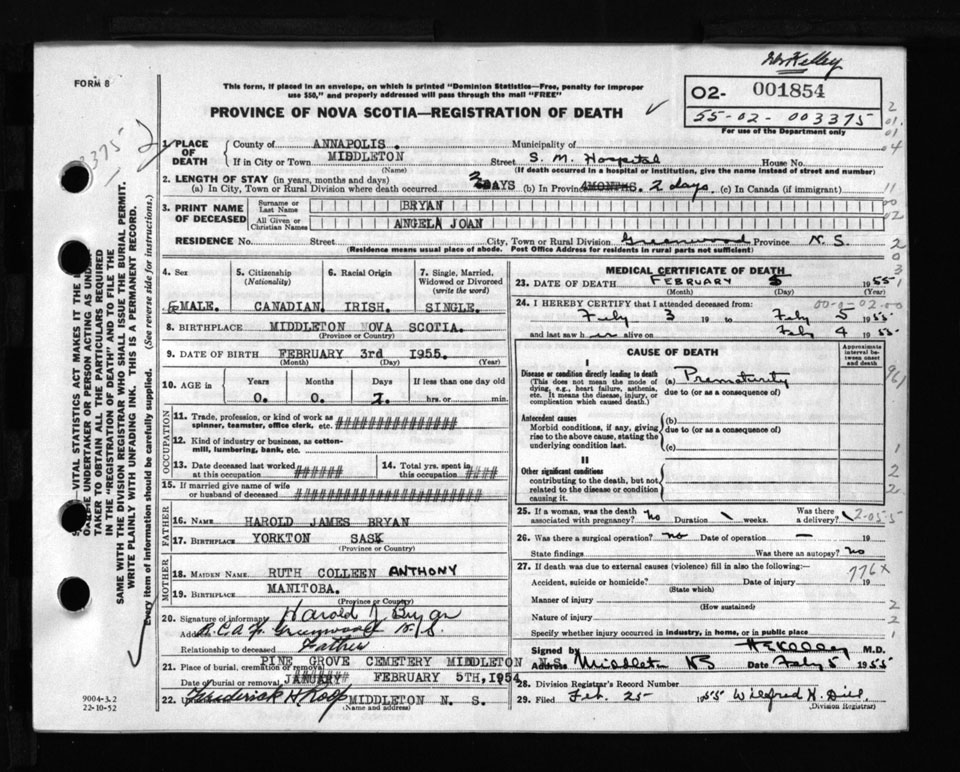 Dr Kelley
FORM 8
This form, if placed in an envelope, on which is printed "Dominion Statistics—Free, penalty for improper
use $50," and properly addressed will pass through the mail "FREE"
PROVINCE OF NOVA SCOTIA—REGISTRATION OF DEATH
O2- 001854
55-02-003375
For use of the Department only
3375
1. PLACE OF DEATH
County of ANNAPOLIS. Municipality of
If in City or Town MIDDLETON Street S. M. Hospital House No.
(Name) (If death occurred in a hospital or institution, give the name instead of street and number)
2. LENGTH OF STAY (in years, months and days)
(a) In City, Town or Rural Division where death occurred 2 DAYS (b) In Province 2 days. (c) In Canada (if immigrant)
3. PRINT NAME OF DECEASED
Surname or Last Name BRYAN
All Given or Christian Names ANGELA JOAN
RESIDENCE No. Street City, Town or Rural Division Greenwood Province N. S.
(Residence means usual place of abode. Post Office Address for residents in rural parts not sufficient)
4. Sex
5. Citizenship (Nationality)
6. Racial Origin
7. Single, Married, Widowed or Divorced (write the word)
FEMALE. CANADIAN. IRISH. SINGLE.
8. BIRTHPLACE MIDDLETON NOVA SCOTIA.
(Province or Country)
9. DATE OF BIRTH FEBRUARY 3rd 1955.
(Month) (Day) (Year)
10. AGE in Years Months Days If less than one day old
0. 0. 2. hrs. or min.
OCCUPATION
11. Trade, profession, or kind of work as
spinner, teamster, office clerk, etc. ##################
12. Kind of industry or business, as cotton-
mill, lumbering, bank, etc.
13. Date deceased last worked at this occupation ######
14. Total yrs. spent in this occupation ####
15. If married give name of wife or husband of deceased ###########################
FATHER
16. NAME HAROLD JAMES BRYAN
17. BIRTHPLACE YORKTON SASK
(Province or Country)
MOTHER
18. MAIDEN NAME RUTH COLLEEN ANTHONY
19. BIRTHPLACE MANITOBA.
(Province or Country)
20. Signature of informant Harold J Bryan
Address R.C.A.F. Greenwood N.S.
Relationship to deceased Father
21. Place of burial, cremation or removal PINE GROVE CEMETERY MIDDLETON N.S.
Date of burial or removal JANUARY FEBRUARY 5TH, 1954
22. Frederick H Rolf MIDDLETON N. S.
(Name and address)
9004-3.2
22-10-52
MEDICAL CERTIFICATE OF DEATH
23. DATE OF DEATH FEBRUARY 5 1955
(Month) (Day) (Year)
24. I HEREBY CERTIFY that I attended deceased from:
Feby 3 19 to Feby 5 1955
and last saw her alive on Feby 4 1955.
CAUSE OF DEATH
Approximate interval between onset and death
I
Disease or condition directly leading to death (a) Prematurity
(This does not mean the mode of dying, e.g., heart failure, asthenia, etc. It means the disease, injury, or complication which caused death.)
due to (or as a consequence of)
Antecedent causes
Morbid conditions, if any, giving rise to the above cause, stating the underlying condition last.
(b)
due to (or as a consequence of)
(c)
II
Other significant conditions
contributing to the death, but not related to the disease or condition causing it.
25. If a woman, was the death associated with pregnancy? no Duration weeks. Was there a delivery?
2-055
26. Was there a surgical operation? no Date of operation — 19
State findings Was there an autopsy? No
27. If death was due to external causes (violence) fill in also the following:—
776x
Accident, suicide or homicide? Date of injury 19
(State which)
Manner of injury
(How sustained)
Nature of injury
Specify whether injury occurred in industry, in home, or in public place
Signed by H E Kelley M.D.
Address Middleton NS Date Feby 5 1955
28. Division Registrar's Record Number
29. Filed Feb. 25- 1955 Wilfred H. Dill.
(Division Registrar)
—VITAL STATISTICS ACT MAKES IT THE
UNDERTAKER OR PERSON ACTING AS UNDER-
TAKER TO OBTAIN ALL THE PARTICULARS REQUIRED
IN THE "REGISTRATION OF DEATH" AND TO FILE THE
SAME WITH THE DIVISION REGISTRAR WHO SHALL ISSUE THE BURIAL PERMIT.
WRITE PLAINLY WITH UNFADING INK. THIS IS A PERMANENT RECORD.
Every item of information should be carefully supplied. (See reverse side for instructions.)